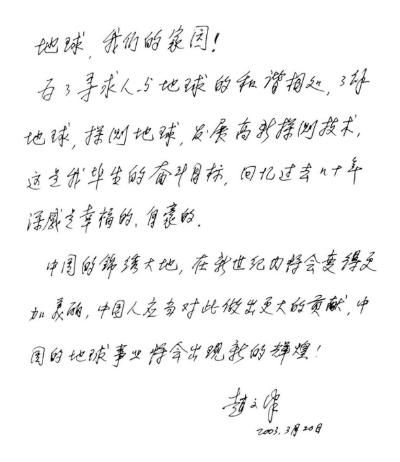 地球，我们的家园！
为了寻求人与地球的和谐相处，了解
地球，探测地球，发展高新探测技术，
这是我毕生的奋斗目标，回忆过去几十年
深感是幸福的，自豪的。
中国的锦绣大地，在新世纪内将会变得更
加美丽，中国人应当对此做出更大的贡献，中
国的地球事业将会出现新的辉煌！
赵文津
2003.3月20日